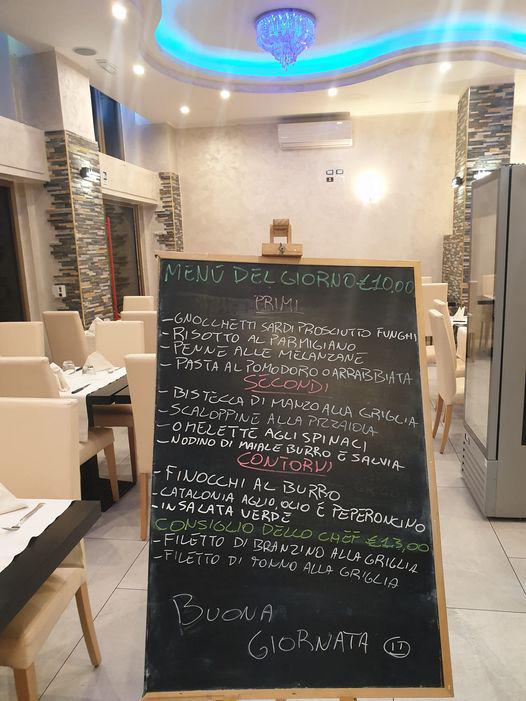 MENÚ DEL GIORNO €10,00
PRIMI
- GNOCCHETTI SARDI PROSCIUTTO FUNGHI
- RISOTTO AL PARMIGIANO
- PENNE ALLE MELANZANE
- PASTA AL POMODORO O ARRABBIATA
SECONDI
- BISTECCA DI MANZO ALLA GRIGLIA
- SCALOPPINE ALLA PIZZAIOLA
- OMELETTE AGLI SPINACI
- NODINO DI MAIALE BURRO E SALVIA
CONTORNI
- FINOCCHI AL BURRO
- CATALONIA AGLIO, OLIO E PEPERONCINO
- INSALATA VERDE
CONSIGLIO DELLO CHEF €13,00
- FILETTO DI BRANZINO ALLA GRIGLIA
- FILETTO DI TONNO ALLA GRIGLIA
BUONA
GIORNATA IT